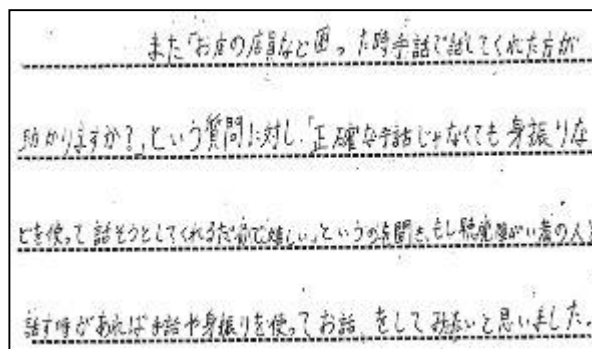 また「お店の店員など困った時手話で話してくれた方が
助かりますか?」という質問に対し、「正確な手話じゃなくても身振りな
どを使って話そうとしてくれるだけで嬉しい」というのを聞き、もし聴覚障がい者の人と
話す時があれば手話や身振りを使ってお話をしてみたいと思いました。